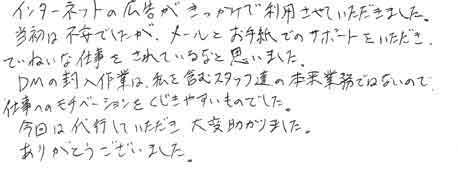 インターネットの広告がきっかけで利用させていただきました。
当初は不安でしたが、メールとお手紙でのサポートをいただき、
ていねいな仕事をされているなと思いました。
DMの封入作業は、私を含むスタッフ達の本来業務ではないので、
仕事へのモチベーションをくじきやすいものでした。
今回は代行していただき大変助かりました。
ありがとうございました。